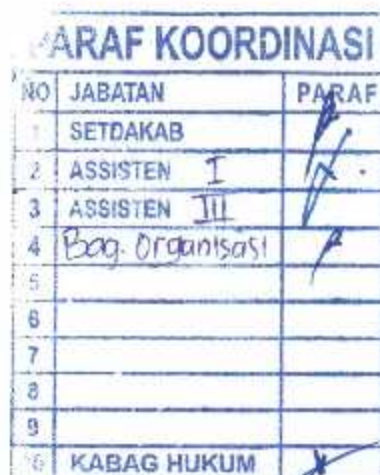 PARAF KOORDINASI
NO JABATAN PARAF
1 SETDAKAB
2 ASSISTEN I
3 ASSISTEN III
4 Bag. Organisasi
5
6
7
8
9
10 KABAG HUKUM